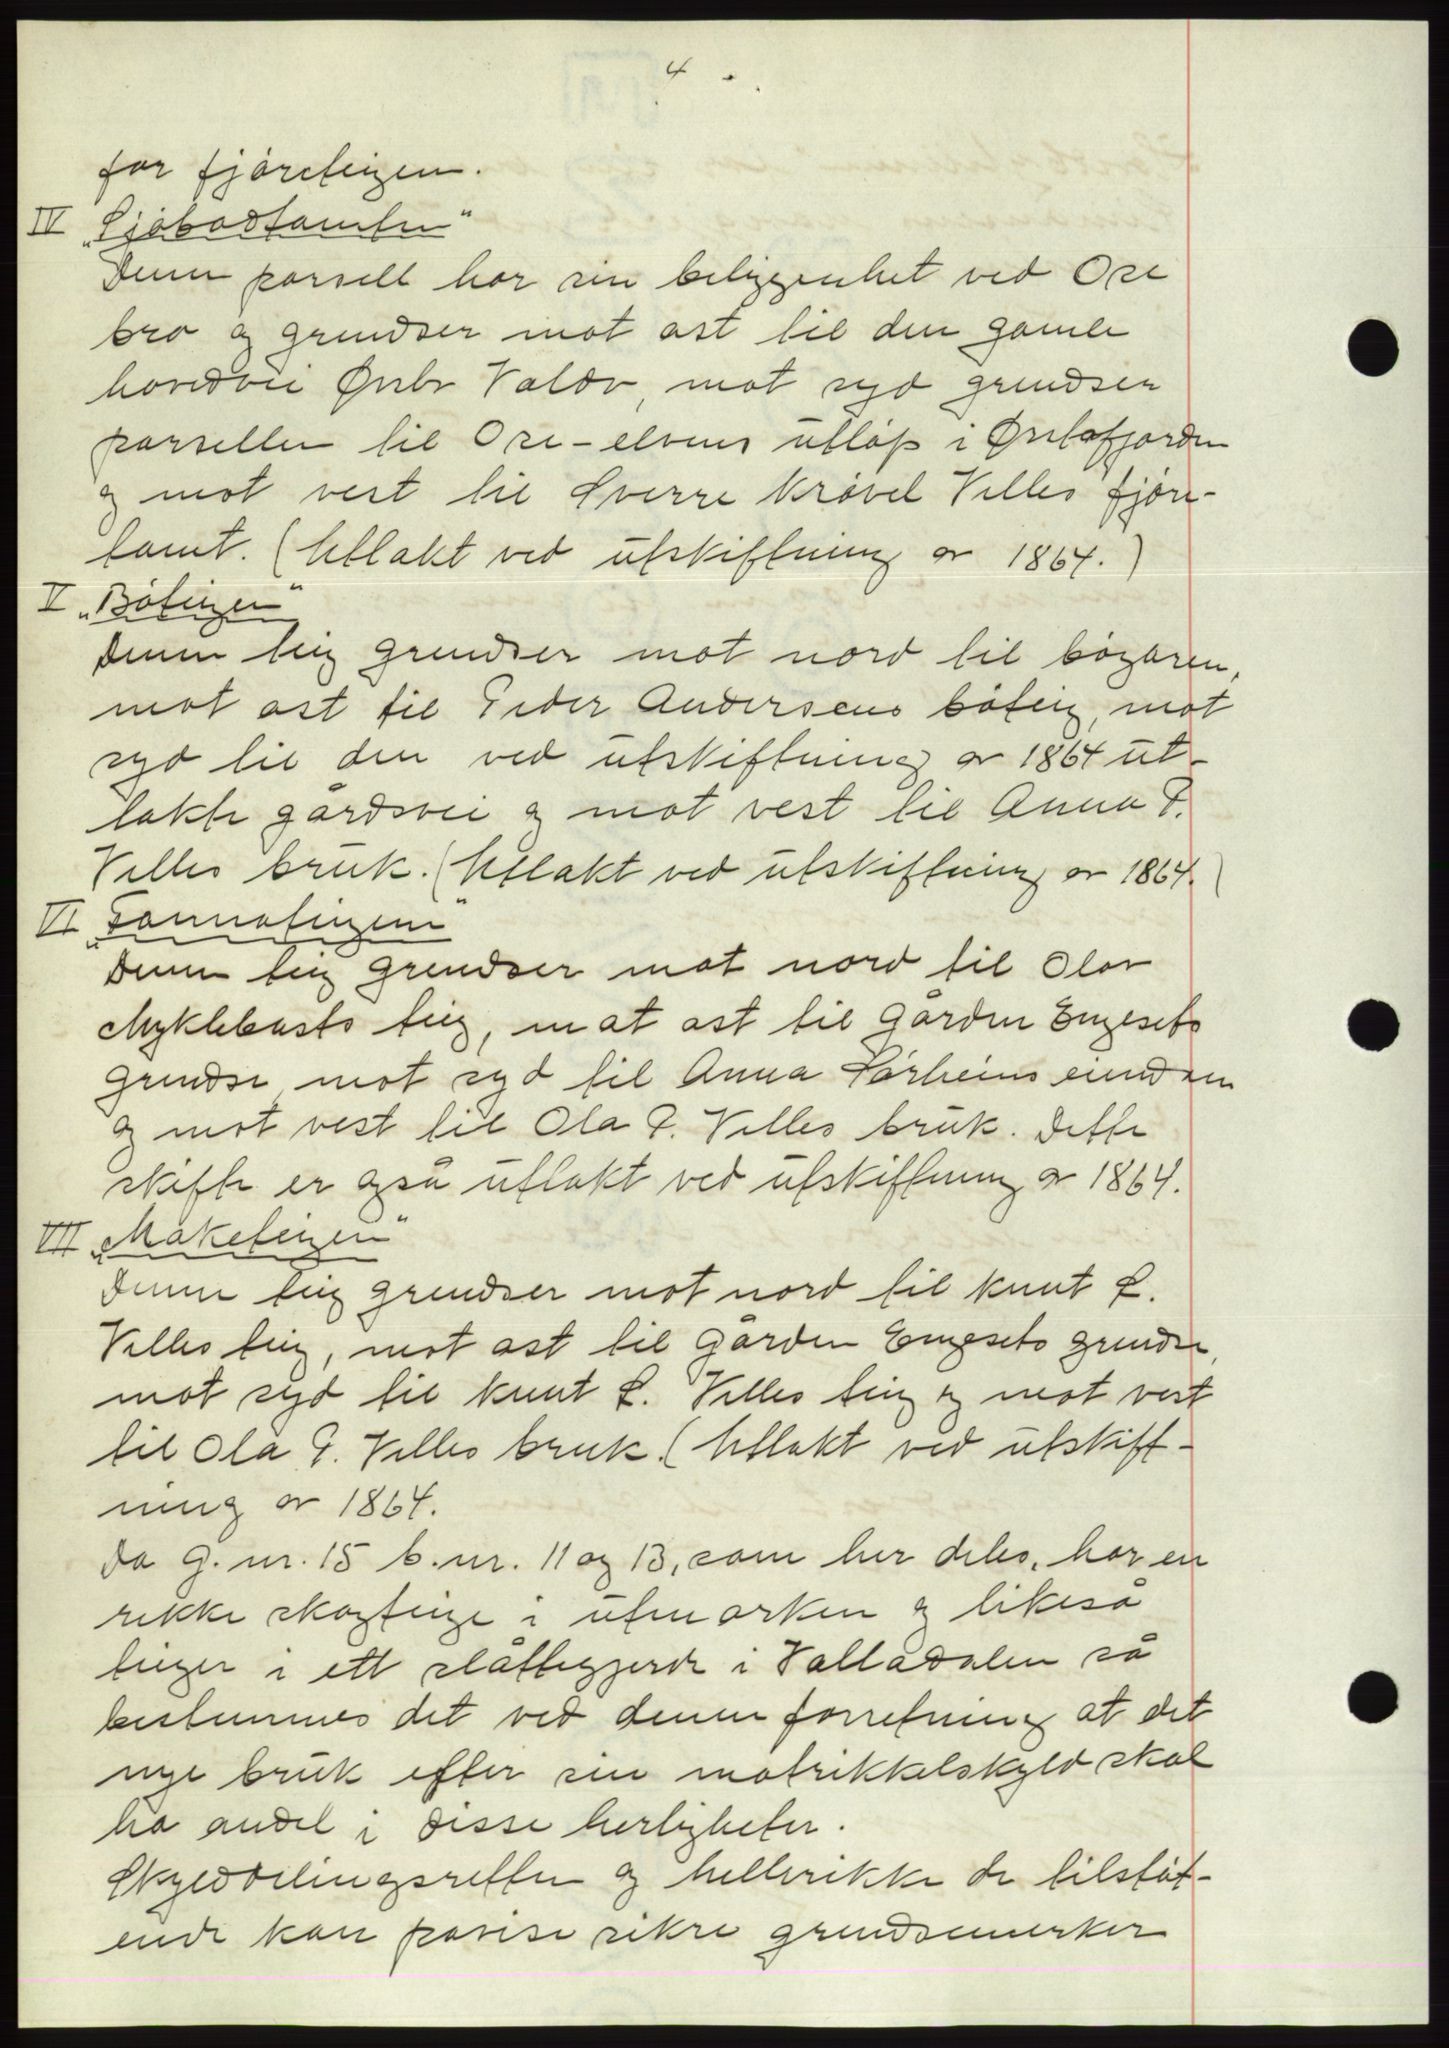 4
for fjøreteigen.
IV „Sjøbodtomten"
Denne parsell har sin beliggenhet ved Ose
bro og grendser mot øst til den gamle
hovedvei Ørsta Volda, mot syd grendser
parsellen til Ose-elvens utløp i Ørstafjorden
og mot vest til Sverre Krøvel Velles fjøre-
tomt. (Utlakt ved utskiftning av 1864.)
V „Bøteigen"
Denne teig grendser mot nord til bøgaren,
mot øst til Peder Andersens bøteig, mot
syd til den ved utskiftning av 1864 ut-
lakte gårdsvei og mot vest til Anna P.
Velles bruk. (Utlakt ved utskiftning av 1864.)
VI „Tonnateigene"
Denne teig grendser mot nord til Olav
Myklebusts teig, mot øst til gården Engesets
grendse, mot syd til Anna Sørheims eiendom
og mot vest til Ola P. Velles bruk. Dette
skifte er også utlakt ved utskiftning av 1864.
VII „Maketeigen"
Denne teig grendser mot nord til Knut L.
Velles teig, mot øst til gården Engesets grendse,
mot syd til Knut L. Velles teig og mot vest
til Ola P. Velles bruk. (Utlakt ved utskift-
ning av 1864.
Da g.nr. 15 b.nr. 11 og 13, som her deles, har en
rekke skogteige i utmarken og likeså
teiger i ett slåtteggjerde i Velladalen så
bestemmes det ved denne forretning at det
nye bruk efter sin matrikkelskyld skal
ha andel i disse herligheter.
Skylddelingsretten og hellerikke de tilstøt-
ende kan påvise sikre grendsemerker